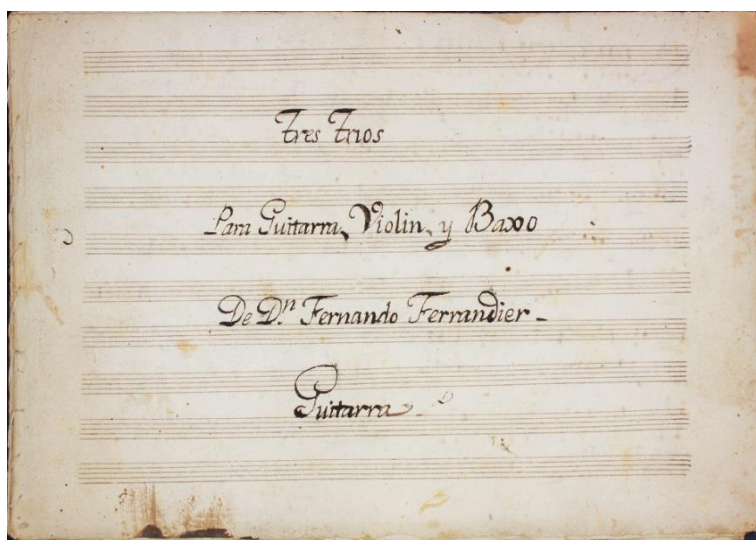 Tres Trios
Para Guitarra, Violin, y Baxo
De D.n Fernando Ferrandier -
Guitarra -